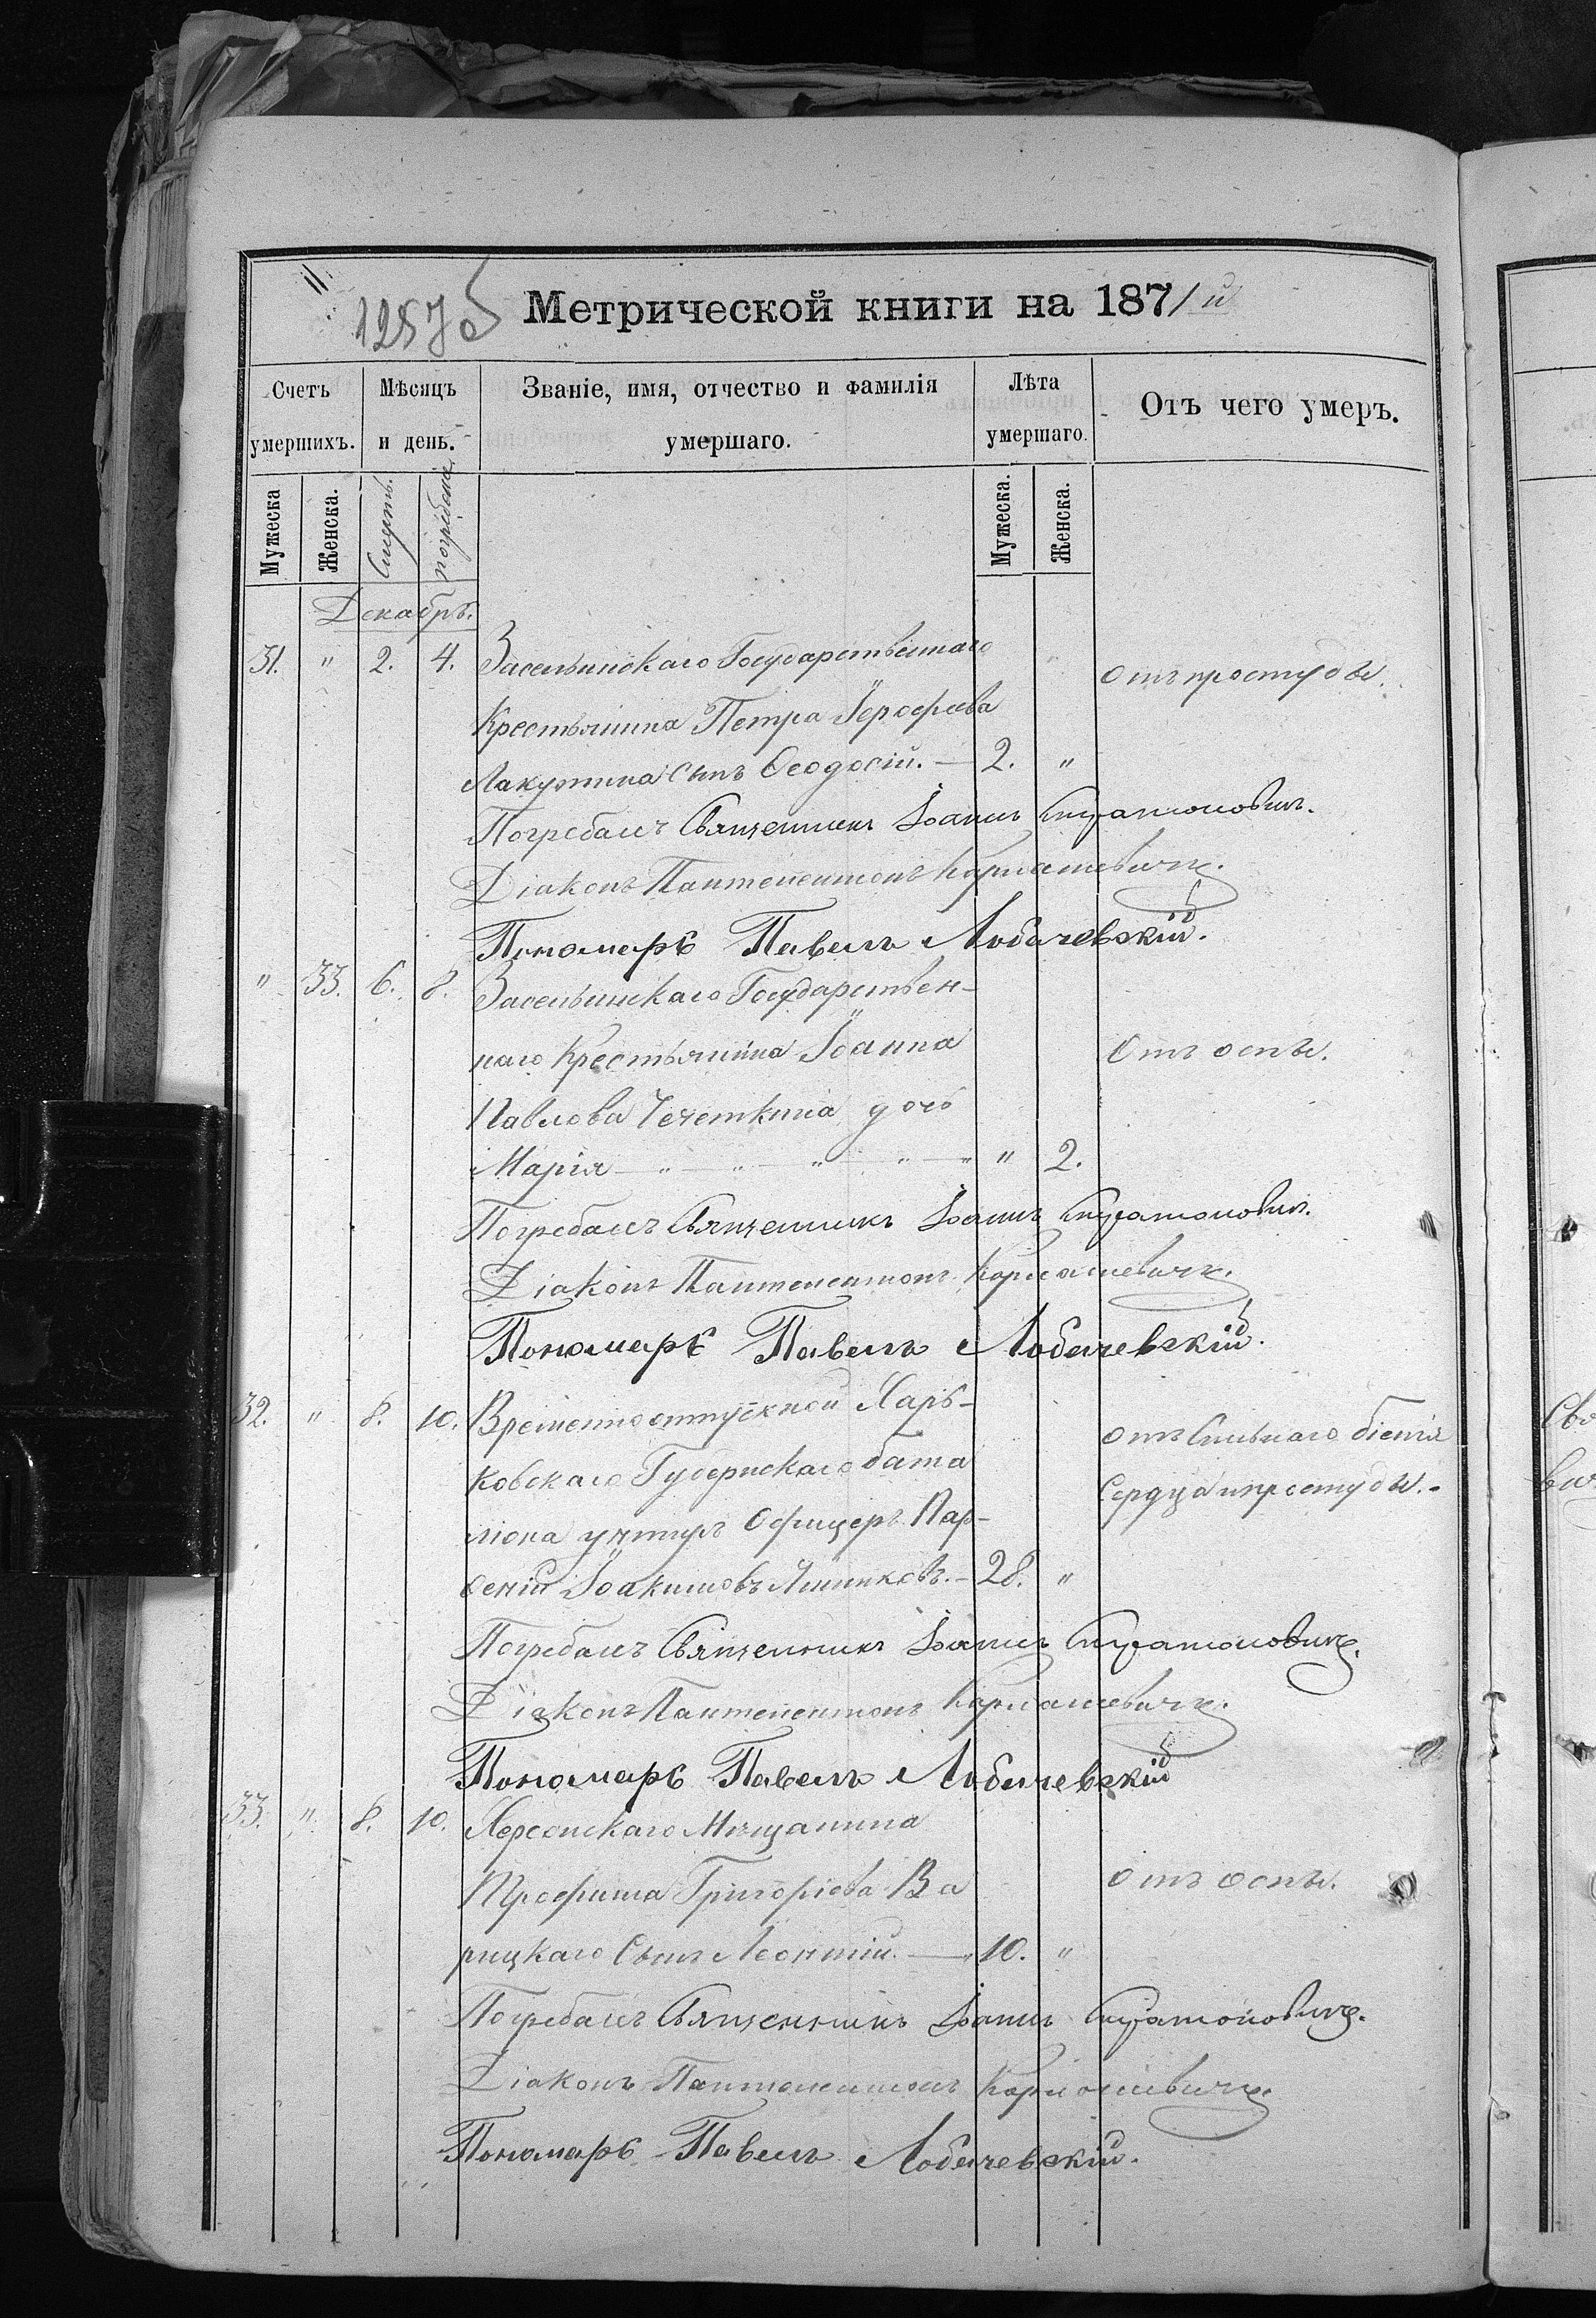 1257 об
Метрической книги на 1871й
Счетъ умершихъ.
Мѣсяцъ и день.
Званіе, имя, отчество и фамилія умершаго.
Лѣта умершаго.
Отъ чего умеръ.
Мужеска
Женска.
Смерть.
погребенія
Мужеска.
Женска.
Декабрь.
31. " 2. 4. Засельскаго Государственнаго
отъ простуды.
Крестьянина Петра Іерофеева
Лакутина сынъ Ѳеодосій. — 2. "
Погребалъ Священникъ Іоаннъ
Діаконъ Пантелеимонъ Кармашевичъ.
Пономарь Павелъ Лобачевскій.
" 33. 6. 8. Засельскаго Государствен-
наго Крестьянина Іоанна
Отъ оспы.
Павлова Чечеткина дочь
Марія — " — " — " — " — " " 2.
Погребалъ Священникъ Іоаннъ
Діаконъ Пантелеимонъ Кармашевичъ.
Пономарь Павелъ Лобачевскій.
32. " 8. 10. Временно отпускной Харь-
отъ сильнаго біенія
ковскаго Губернскаго бата
сердца и простуды.-
ліона унтеръ Офицеръ Пар-
ѳеній Іоакимовъ — 28. "
Погребалъ Священникъ Іоаннъ
Діаконъ Пантелеимонъ Кармашевичъ.
Пономарь Павелъ Лобачевскій
33. " 8. 10. Херсонскаго Мѣщанина
Трофима Григоріева Ва
отъ оспы.
рицкаго сынъ Леонтій. — 10. "
Погребалъ Священникъ Іоаннъ
Діаконъ Пантелеимонъ Кармашевичъ.
Пономарь Павелъ Лобачевскій.